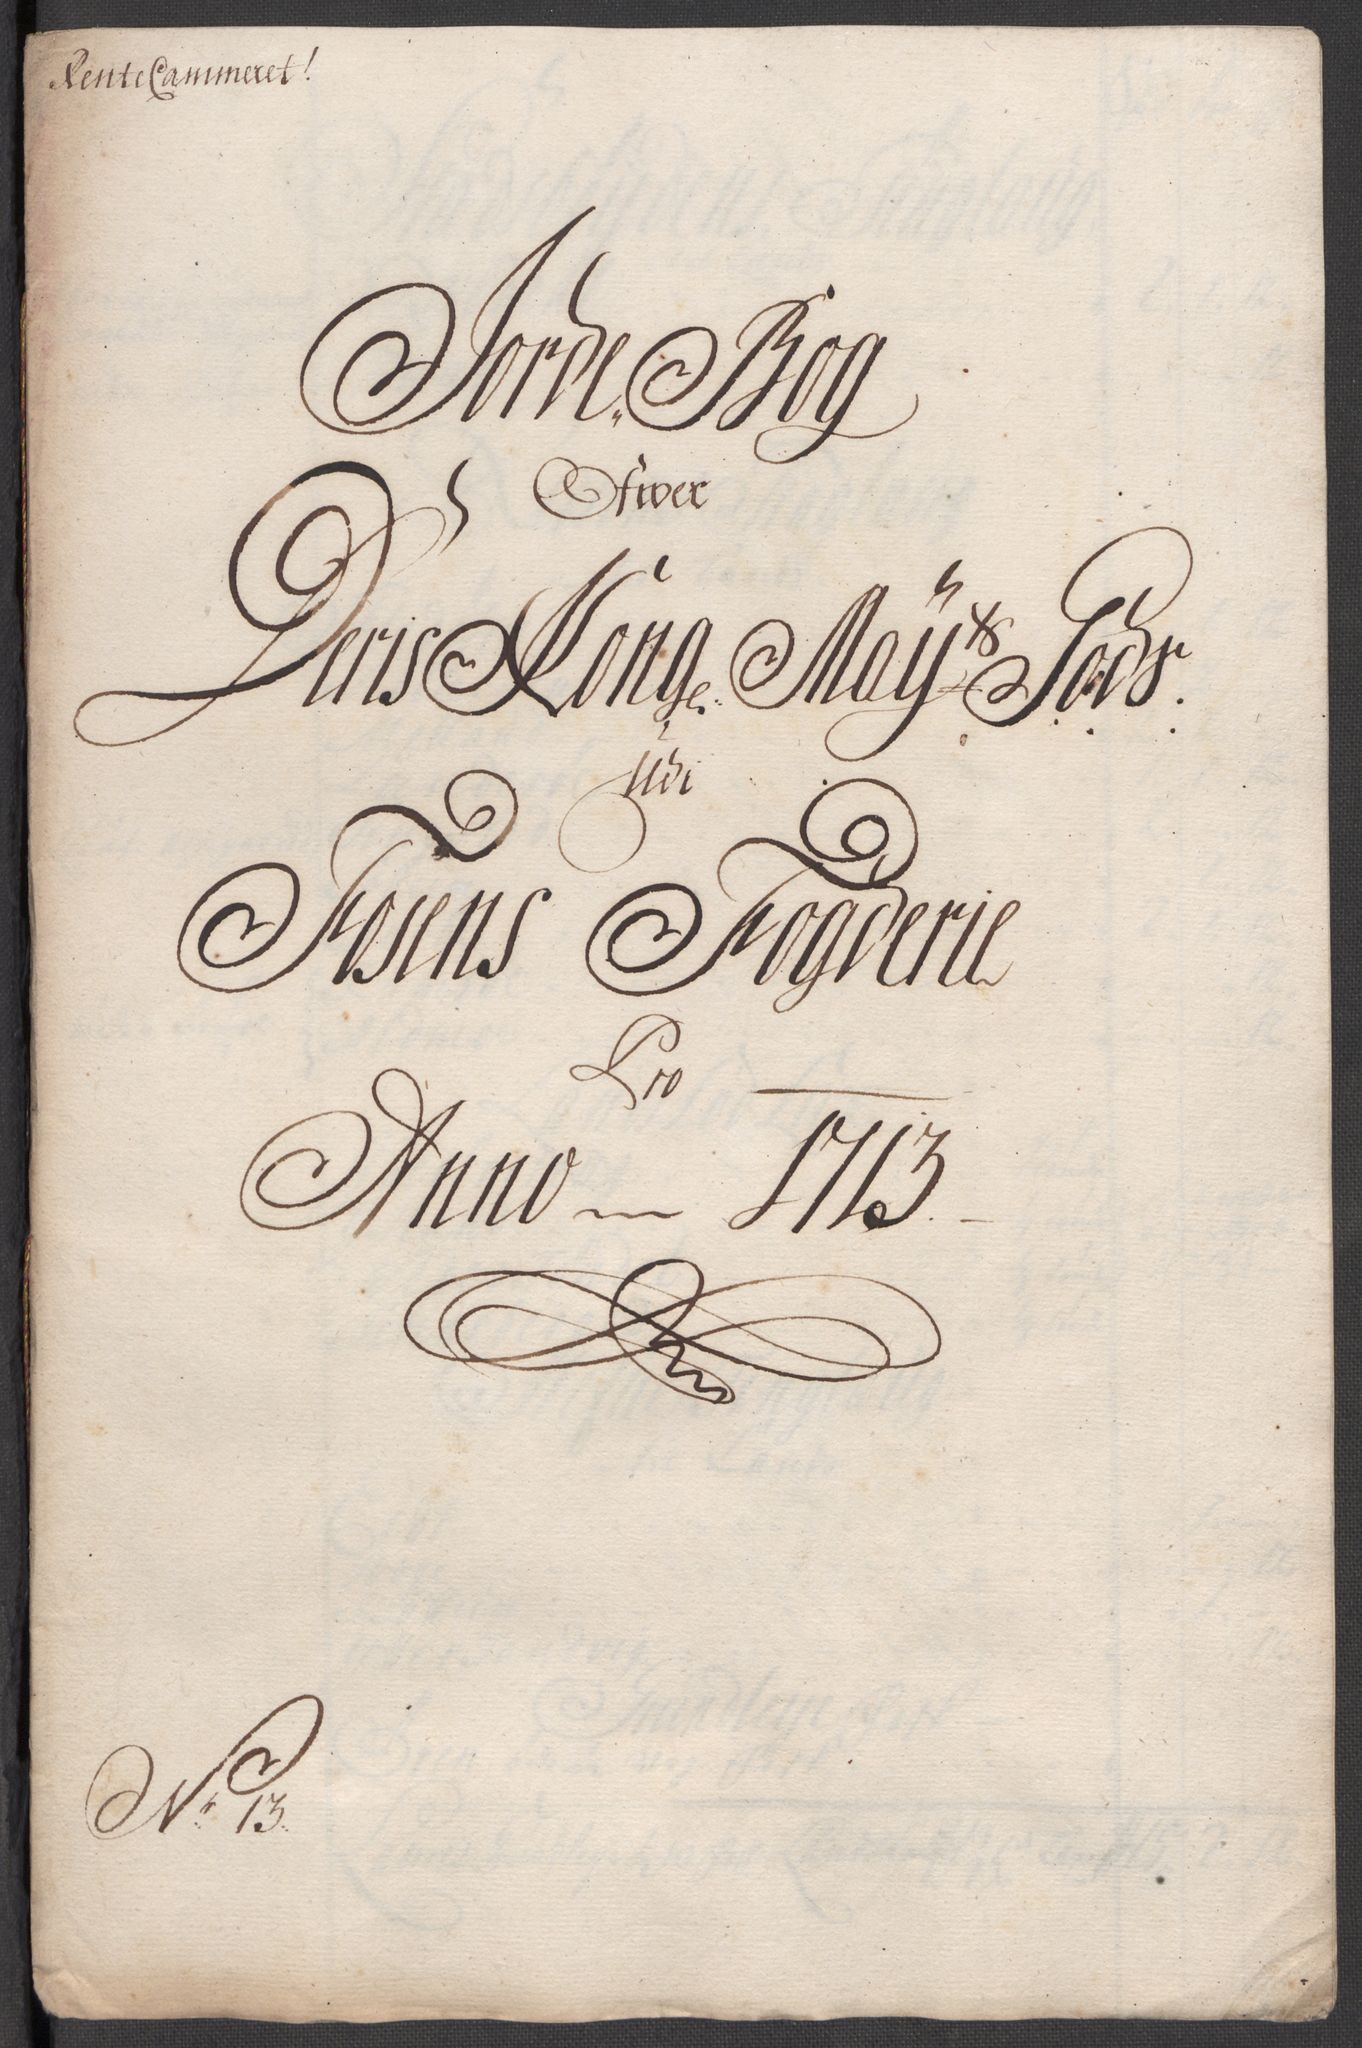 RenteCammeret!
Jorde Bog
Ofwer
Deris Kongе. Mayts Gods.
Udi
Fosens Fogderie
Pro
Anno 1713.
No 13.